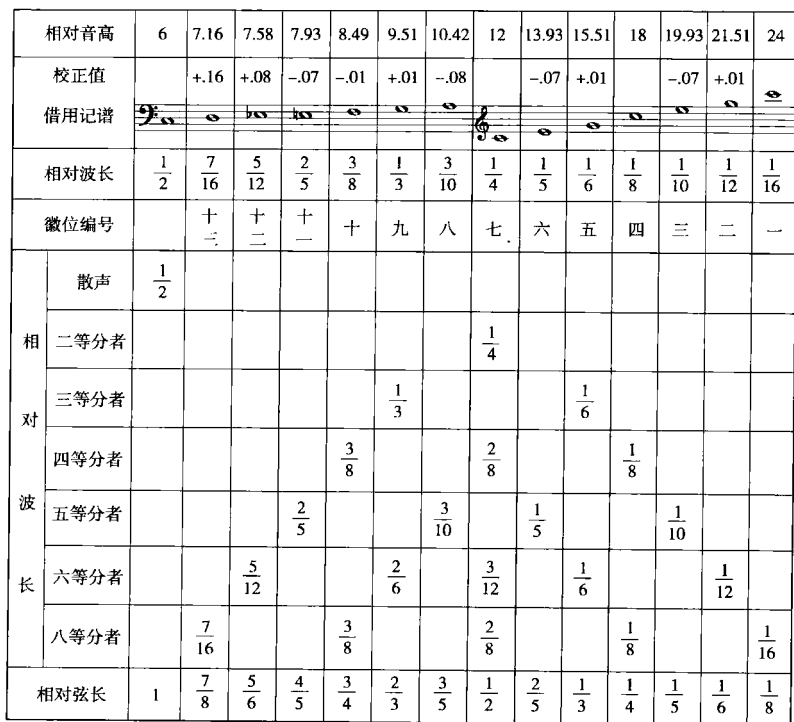 相对音高 6 7.16 7.58 7.93 8.49 9.51 10.42 12 13.93 15.51 18 19.93 21.51 24
校正值 +.16 +.08 -.07 -.01 +.01 -.08 -.07 +.01 -.07 +.01
借用记谱
相对波长 1/2 7/16 5/12 2/5 3/8 1/3 3/10 1/4 1/5 1/6 1/8 1/10 1/12 1/16
徽位编号 十三 十二 十一 十 九 八 七 六 五 四 三 二 一
相对波长
散声 1/2
二等分者 1/4
三等分者 1/3 1/6
四等分者 3/8 2/8 1/8
五等分者 2/5 3/10 1/5 1/10
六等分者 5/12 2/6 3/12 1/6 1/12
八等分者 7/16 3/8 2/8 1/8 1/16
相对弦长 1 7/8 5/6 4/5 3/4 2/3 3/5 1/2 2/5 1/3 1/4 1/5 1/6 1/8